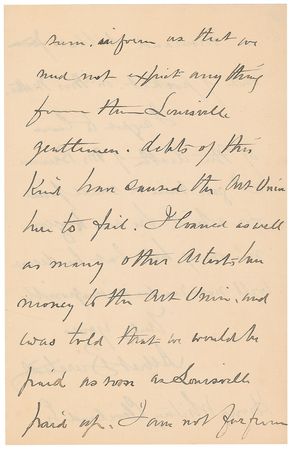 sum. inform us that we
need not expect anything
from the Louisville
gentlemen. debts of this
kind have caused the Art Union
here to fail. I loaned as well
as many other Artists here
money to the Art Union. and
was told that we would be
paid as soon as Louisville
paid up. I am not far from